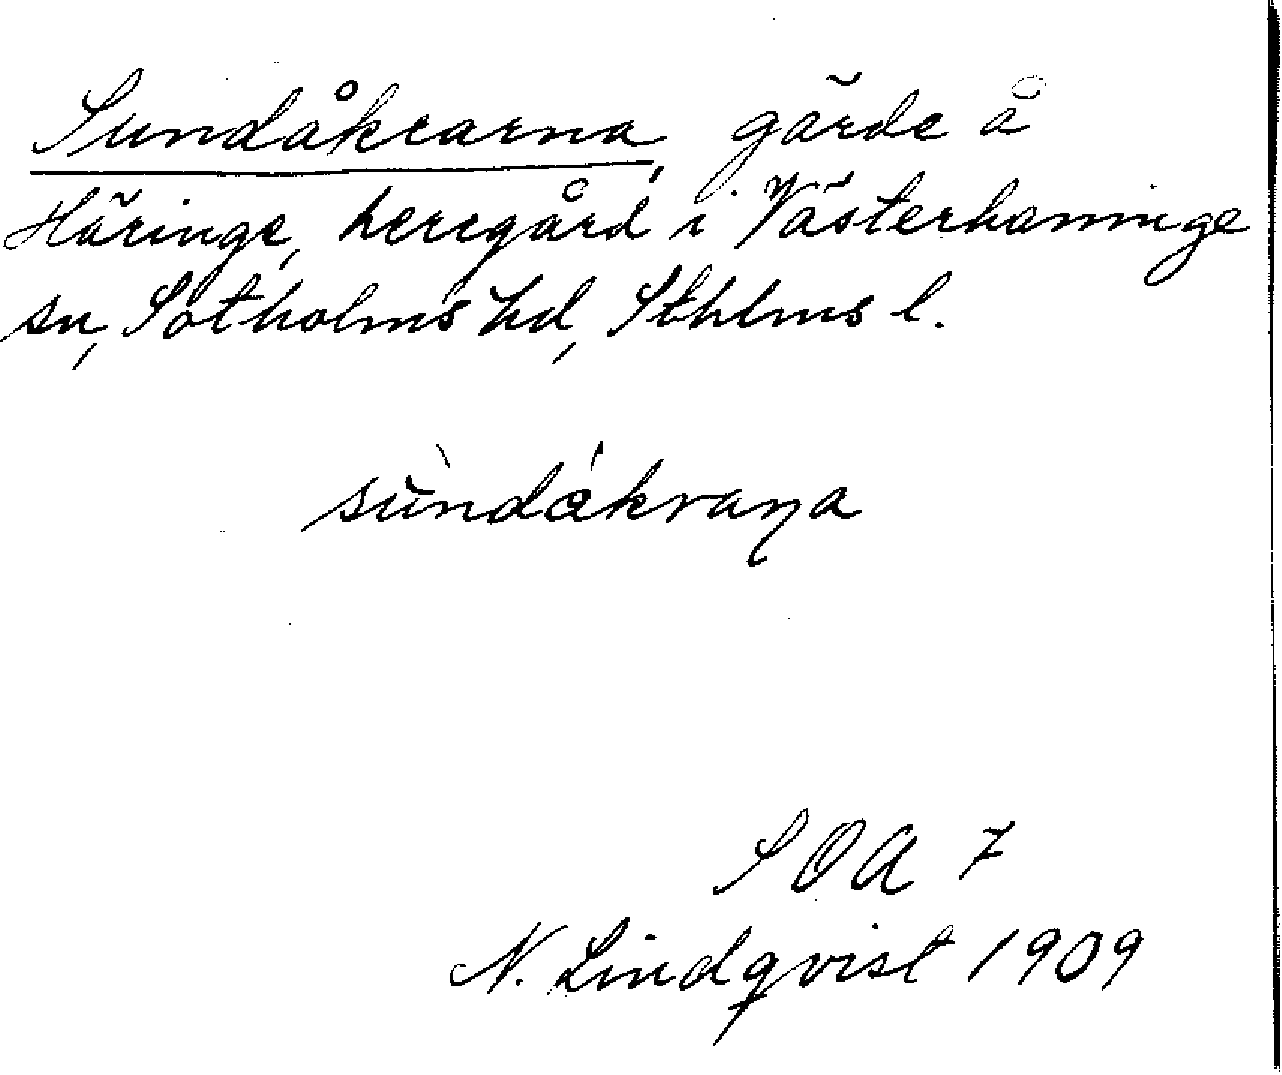 Sundåkrarna, gärde å
Häringe, herrgård i Västerhaninge
sn, Sotholms hd, Sthlms l.
sùndákraɳa
SOA 7
N. Lindqvist 1909